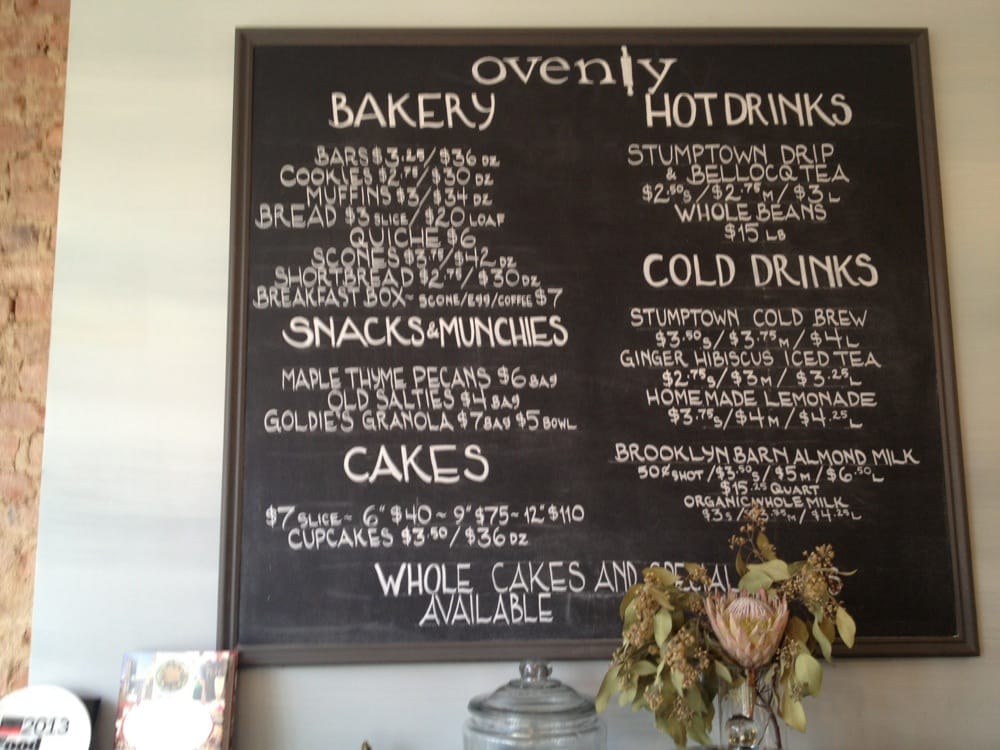 ovenly
BAKERY
BARS $3.25 / $36 DZ
COOKIES $2.75 / $30 DZ
MUFFINS $3 / $34 DZ
BREAD $3 SLICE / $20 LOAF
QUICHE $6
SCONES $3.75 / $42 DZ
SHORTBREAD $2.75 / $30 DZ
BREAKFAST BOX~ SCONE/EGG/COFFEE $7
SNACKS & MUNCHIES
MAPLE THYME PECANS $6 BAG
OLD SALTIES $4 BAG
GOLDIE'S GRANOLA $7 BAG $5 BOWL
CAKES
$7 SLICE~ 6" $40 ~ 9" $75 ~ 12" $110
CUPCAKES $3.50 / $36 DZ
HOT DRINKS
STUMPTOWN DRIP
& BELLOCQ TEA
$2.50 S / $2.75 M / $3 L
WHOLE BEANS
$15 LB
COLD DRINKS
STUMPTOWN COLD BREW
$3.50 S / $3.75 M / $4 L
GINGER HIBISCUS ICED TEA
$2.75 S / $3 M / $3.25 L
HOMEMADE LEMONADE
$3.75 S / $4 M / $4.25 L
BROOKLYN BARN ALMOND MILK
50¢ SHOT / $3.50 S / $5 M / $6.50 L
$15.25 QUART
ORGANIC WHOLE MILK
$3 S / M / $4.25 L
WHOLE CAKES AND SPECIAL
AVAILABLE
2013